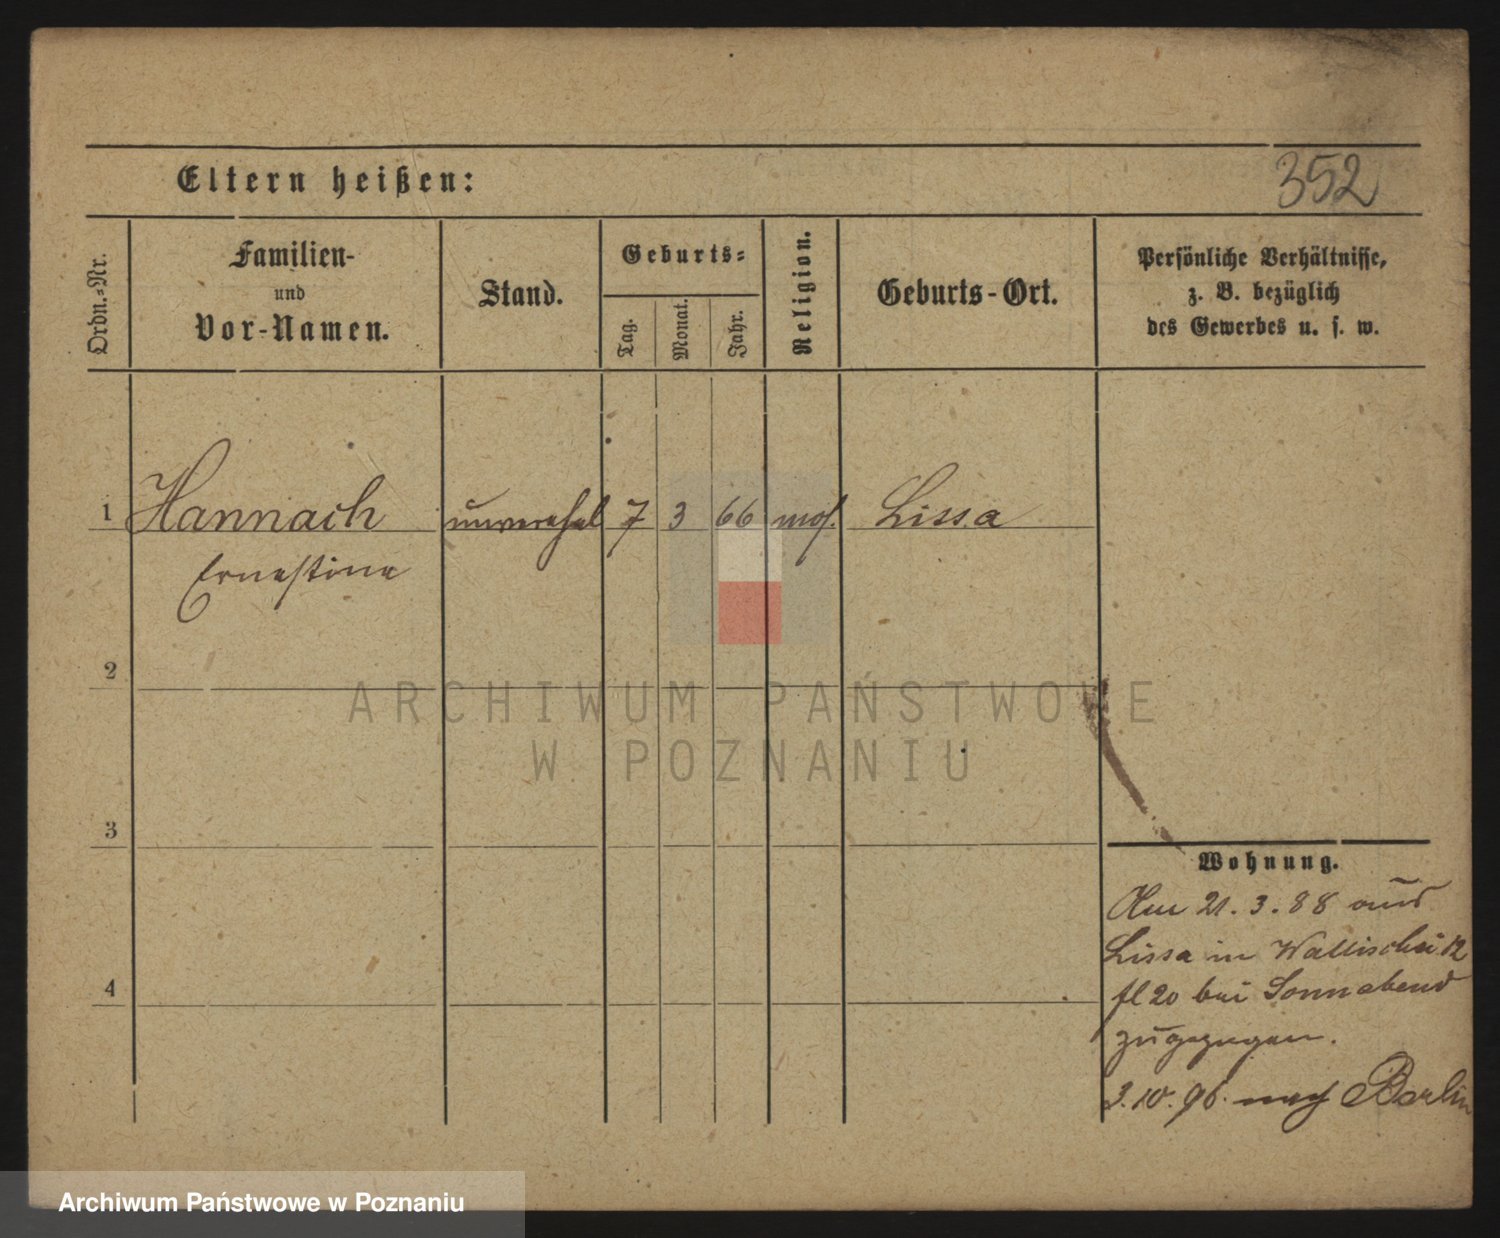 352
Eltern heißen:
Ordn.-Nr.
Familien-
und
Vor-Namen.
Stand.
Geburts-
Tag.
Monat.
Jahr.
Religion.
Geburts-Ort.
Persönliche Verhältnisse,
z. B. bezüglich
des Gewerbes u. s. w.
1 Hannach unverehel 7 3 66 mos. Lissa
Ernestine
2
3
4
Wohnung.
Am 21. 3. 88 aus
Lissa in Wallischei 12
bei Sonnabend
zugezogen.
3. 10. 96. nach Berlin
ARCHIWUM PAŃSTWOWE
W POZNANIU
Archiwum Państwowe w Poznaniu